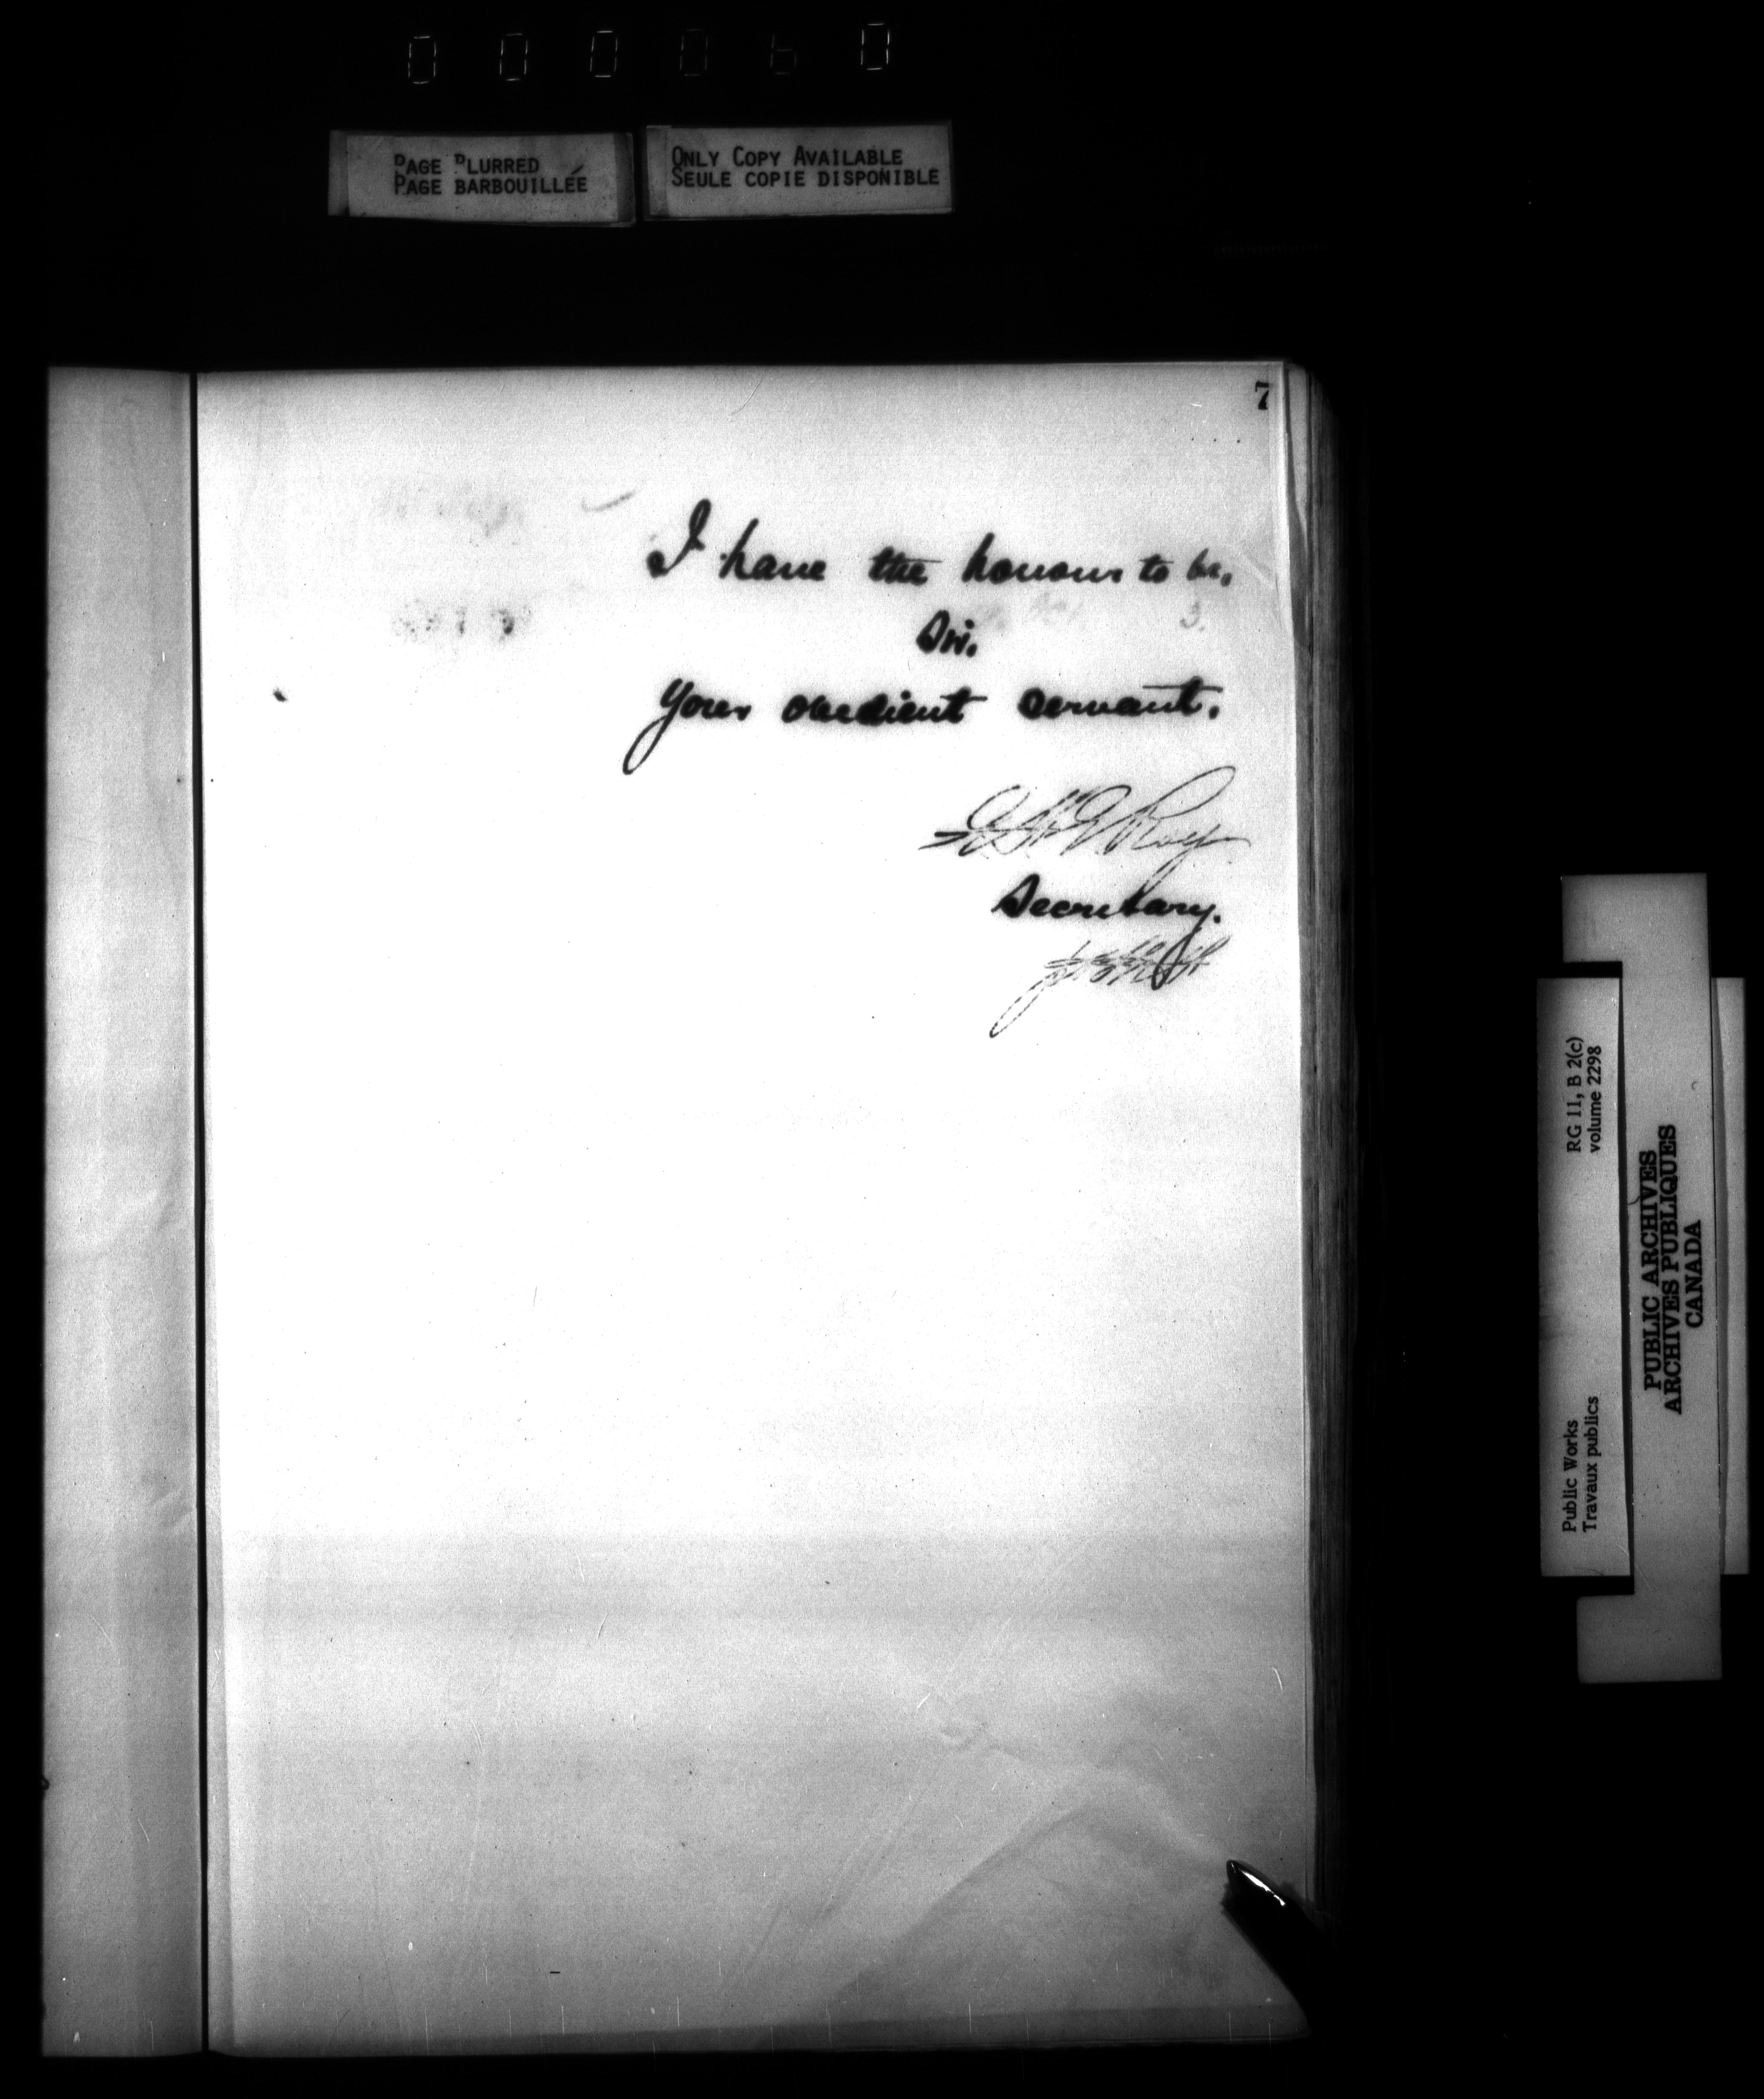 0 0 0 0 6 0
PAGE BLURRED
PAGE BARBOUILLÉE
ONLY COPY AVAILABLE
SEULE COPIE DISPONIBLE
7
I have the honour to be,
Sir.
Your obedient servant.
Roy
Secretary.
RG 11, B 2(c)
volume 2298
Public Works
Travaux publics
PUBLIC ARCHIVES
ARCHIVES PUBLIQUES
CANADA